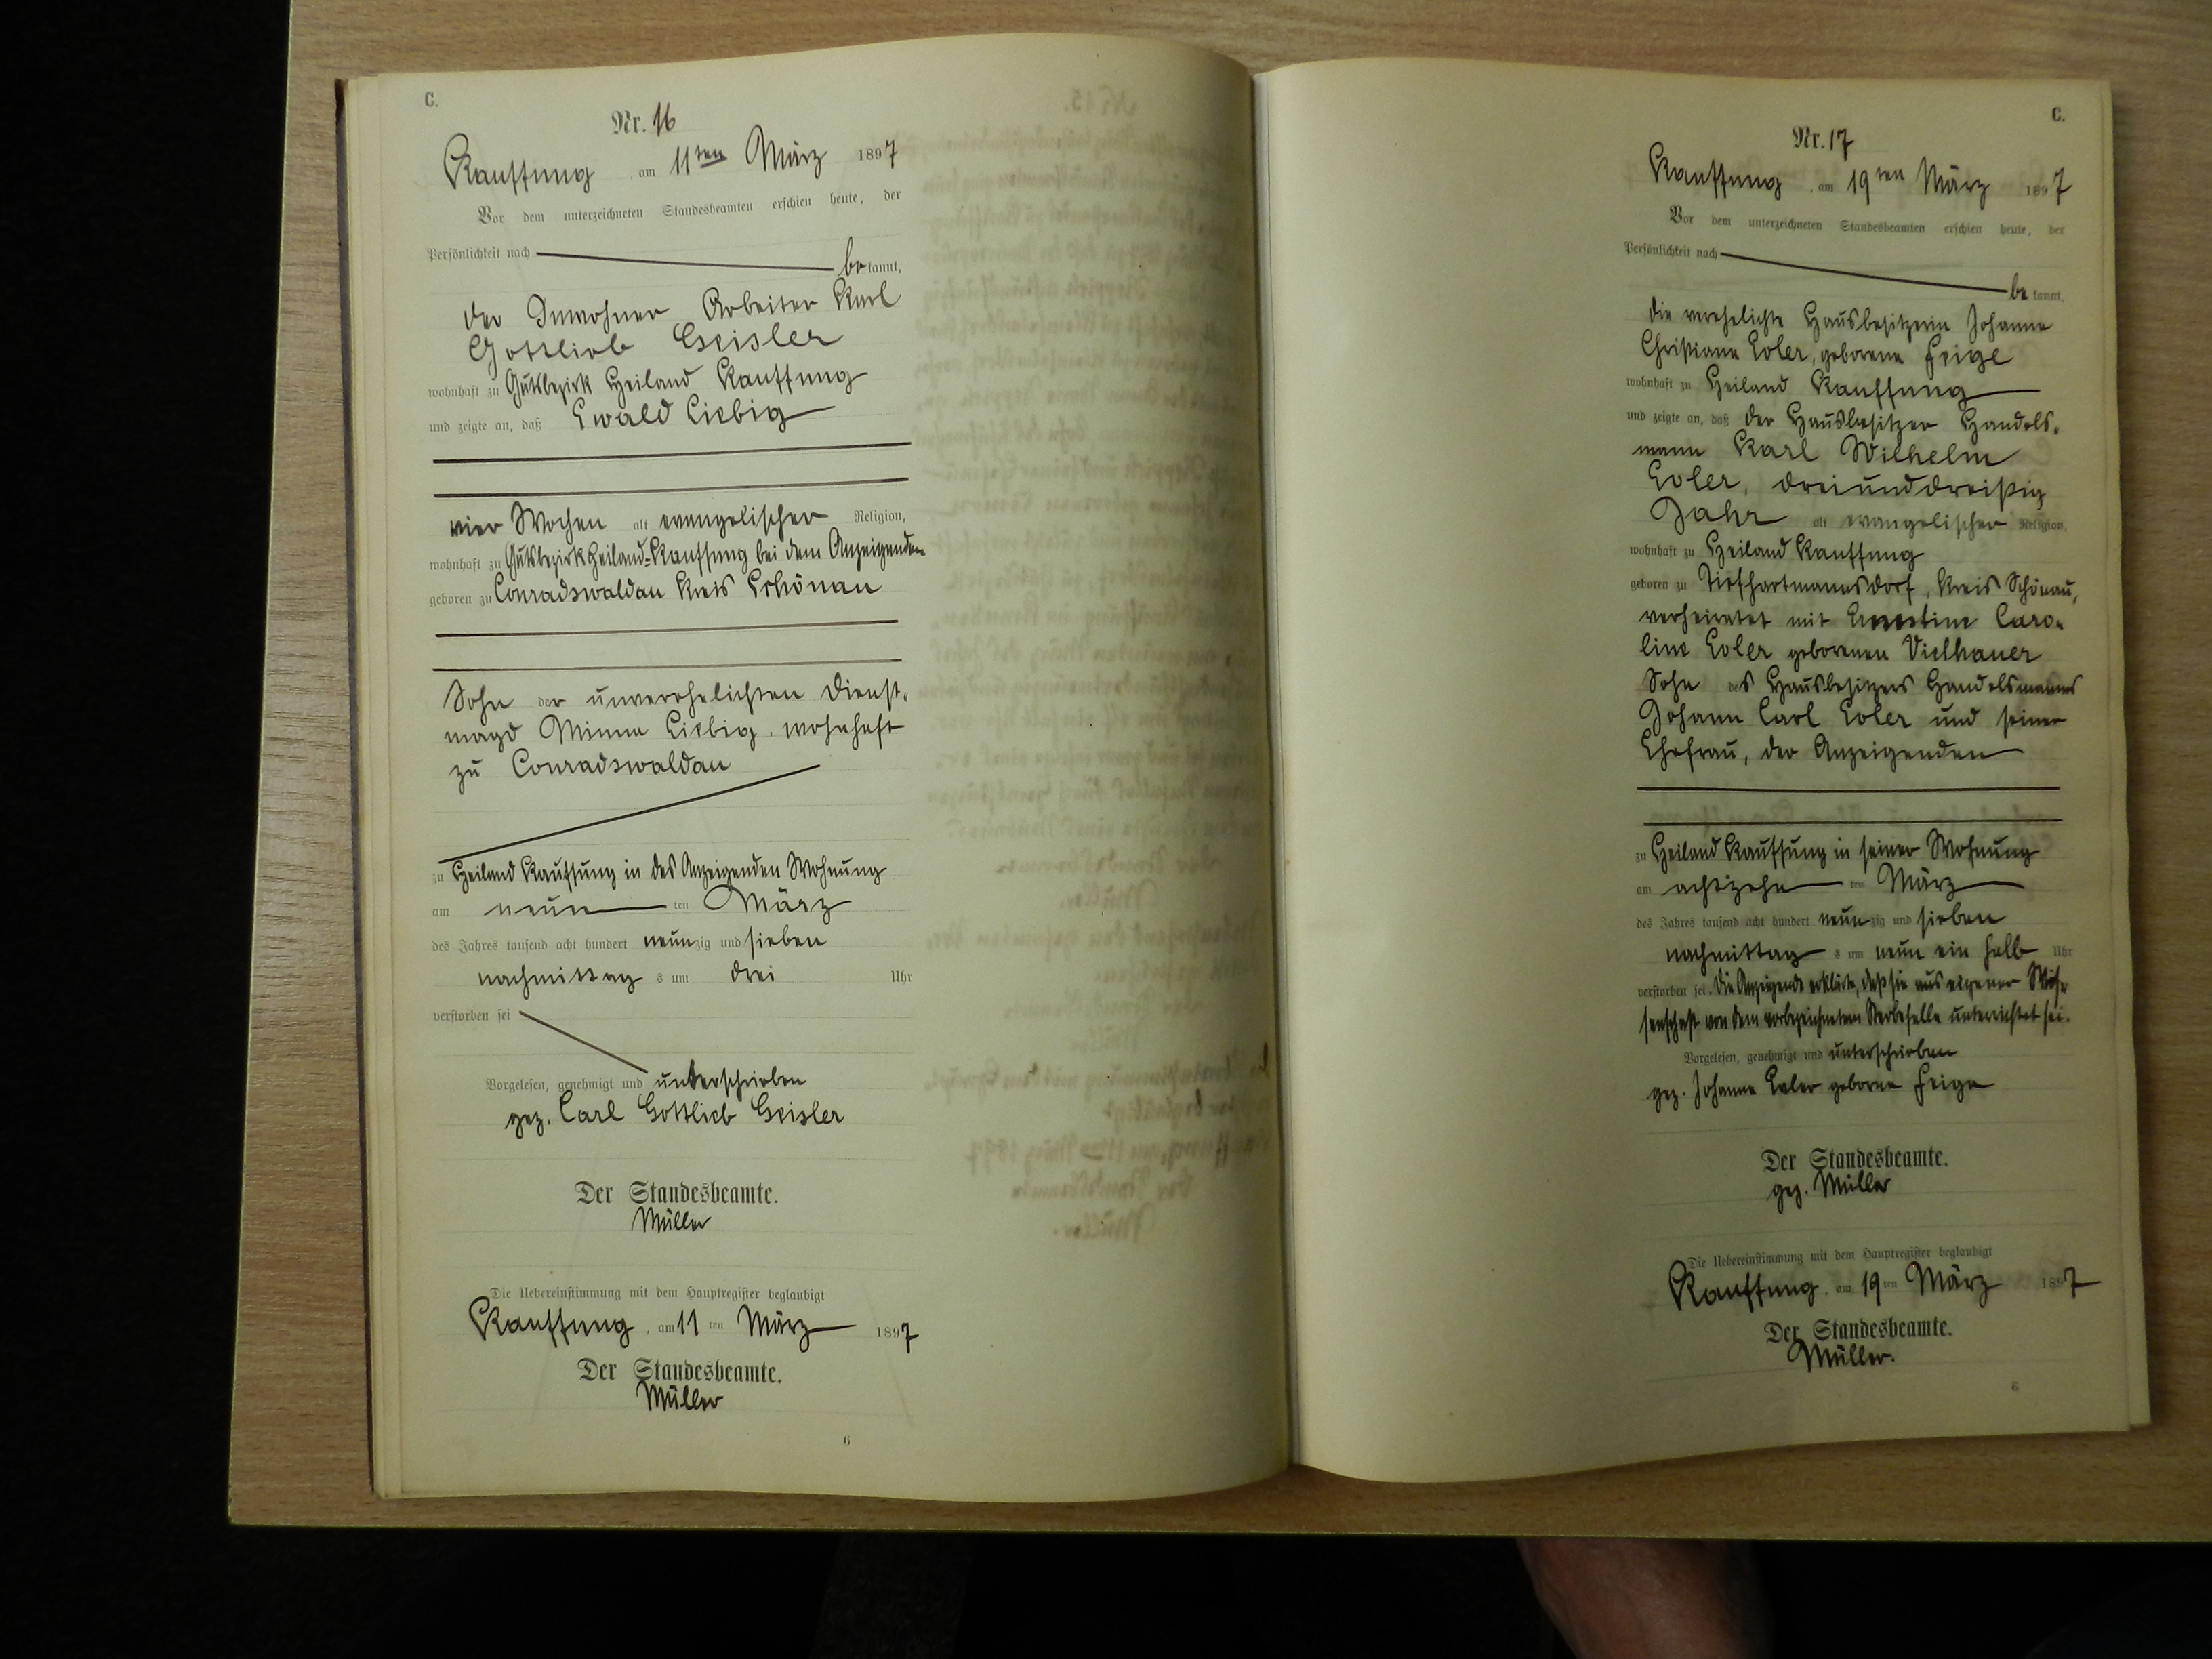 C.
Nr. 16
Kauffung, am 11ten März 1897
Vor dem unterzeichneten Standesbeamten erschien heute, der
Persönlichkeit nach bekannt,
der Inwohner Arbeiter Karl
Gottlieb Geisler
wohnhaft zu Gutsbezirk Heiland Kauffung
und zeigte an, daß Ewald Liebig
vier Wochen alt evangelischer Religion,
wohnhaft zu Gutsbezirk Heiland-Kauffung bei dem Anzeigenden
geboren zu Conradswaldau Kreis Schönau
Sohn der unverehelichten Dienst-
magd Minna Liebig, wohnhaft
zu Conradswaldau
zu Heiland Kauffung in des Anzeigenden Wohnung
am neun ten März
des Jahres tausend acht hundert neunzig und sieben
nachmittags um drei Uhr
verstorben sei
Vorgelesen, genehmigt und unterschrieben
gez. Carl Gottlieb Geisler
Der Standesbeamte.
Müller
Die Uebereinstimmung mit dem Hauptregister beglaubigt
Kauffung, am 11ten März 1897
Der Standesbeamte.
Müller
6
C.
Nr. 17
Kauffung, am 19ten März 1897
Vor dem unterzeichneten Standesbeamten erschien heute, der
Persönlichkeit nach bekannt,
die verehelichte Hausbesitzerin Johanne
Christiane Exler, geborene Feige
wohnhaft zu Heiland Kauffung
und zeigte an, daß der Hausbesitzer Handels-
mann Karl Wilhelm
Exler, dreiunddreißig
Jahr alt evangelischer Religion,
wohnhaft zu Heiland Kauffung
geboren zu Tiefhartmannsdorf, Kreis Schönau,
verheiratet mit Ernestine Caro-
line Exler geborenen Vielhauer
Sohn des Hausbesitzers Handelsmanns
Johann Carl Exler und seiner
Ehefrau, der Anzeigenden
zu Heiland Kauffung in seiner Wohnung
am achtzehn ten März
des Jahres tausend acht hundert neunzig und sieben
nachmittags um neun ein halb Uhr
verstorben sei. Die Anzeigende erklärte, daß sie aus eigener Wis-
senschaft von dem vorbezeichneten Sterbefalle unterrichtet sei.
Vorgelesen, genehmigt und unterschrieben
gez. Johanne Exler geborne Feige
Der Standesbeamte.
gez. Müller
Die Uebereinstimmung mit dem Hauptregister beglaubigt
Kauffung, am 19ten März 1897
Der Standesbeamte.
Müller.
6